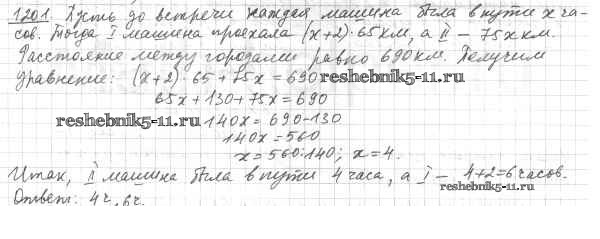 1201. Пусть до встречи каждая машина была в пути x ча-
сов. Тогда I машина проехала (x+2)·65 км, а II – 75x км.
Расстояние между городами равно 690 км. Получим
уравнение: (x+2)·65+75x=690 reshebnik5-11.ru
65x+130+75x=690
reshebnik5-11.ru 140x=690-130
140x=560
x=560:140; x=4.
Итак, II машина была в пути 4 часа, а I – 4+2=6 часов.
reshebnik5-11.ru
Ответ: 4ч, 6ч.